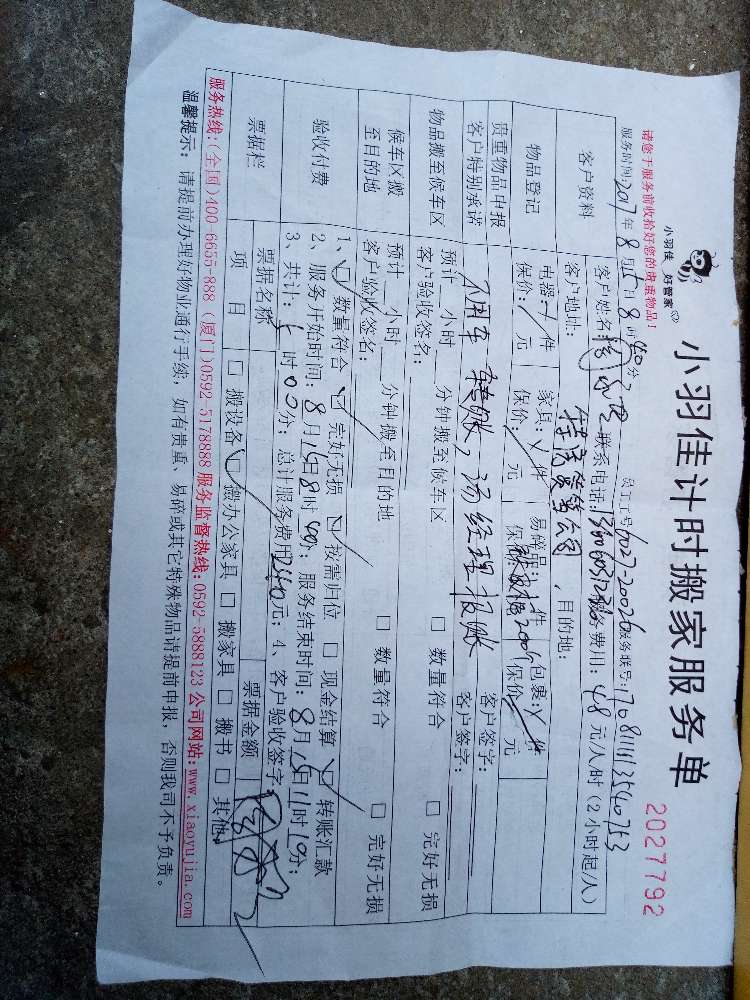 小羽佳 好管家
小羽佳计时搬家服务单
2027792
请您于服务前收拾好您的贵重物品！
服务时间：2017年8月15日8时40分 员工工号：6027-20026 服务账号：
客户资料
客户姓名： 联系电话： 服务费用：48元/人/时（2小时起/人）
客户地址： ，目的地：
物品登记
电器：件 家具：件 易碎品：件 包裹：件
保价：元 保价：元 保价：元 保价：元
贵重物品申报
客户签字：
客户特别承诺
不用车 转账，汤经理报账
客户签字：
物品搬至候车区
预计 小时 分钟搬至候车区 □ 数量符合 □ 完好无损
客户验收签名：
候车区搬至目的地
预计 小时 分钟搬至目的地 □ 数量符合 □ 完好无损
客户验收签名：
验收付费
1、☑ 数量符合 ☑ 完好无损 ☑ 按需归位 □ 现金结算 ☑ 转账汇款
2、服务开始时间：8月15日8时40分；服务结束时间：8月15日11时10分；
3、共计：时00分；总计服务费用240元；4、客户验收签字：
票据栏
票据名称 票据金额
项目 □ 搬设备 ☑ 搬办公家具 □ 搬家具 □ 搬书 □ 其他
服务热线：(全国)400-6655-888 (厦门)0592-5178888 服务监督热线：0592-5888123 公司网站：www.xiaoyujia.com
温馨提示：请提前办理好物业通行手续，如有贵重、易碎或其它特殊物品请提前申报，否则我司不予负责。